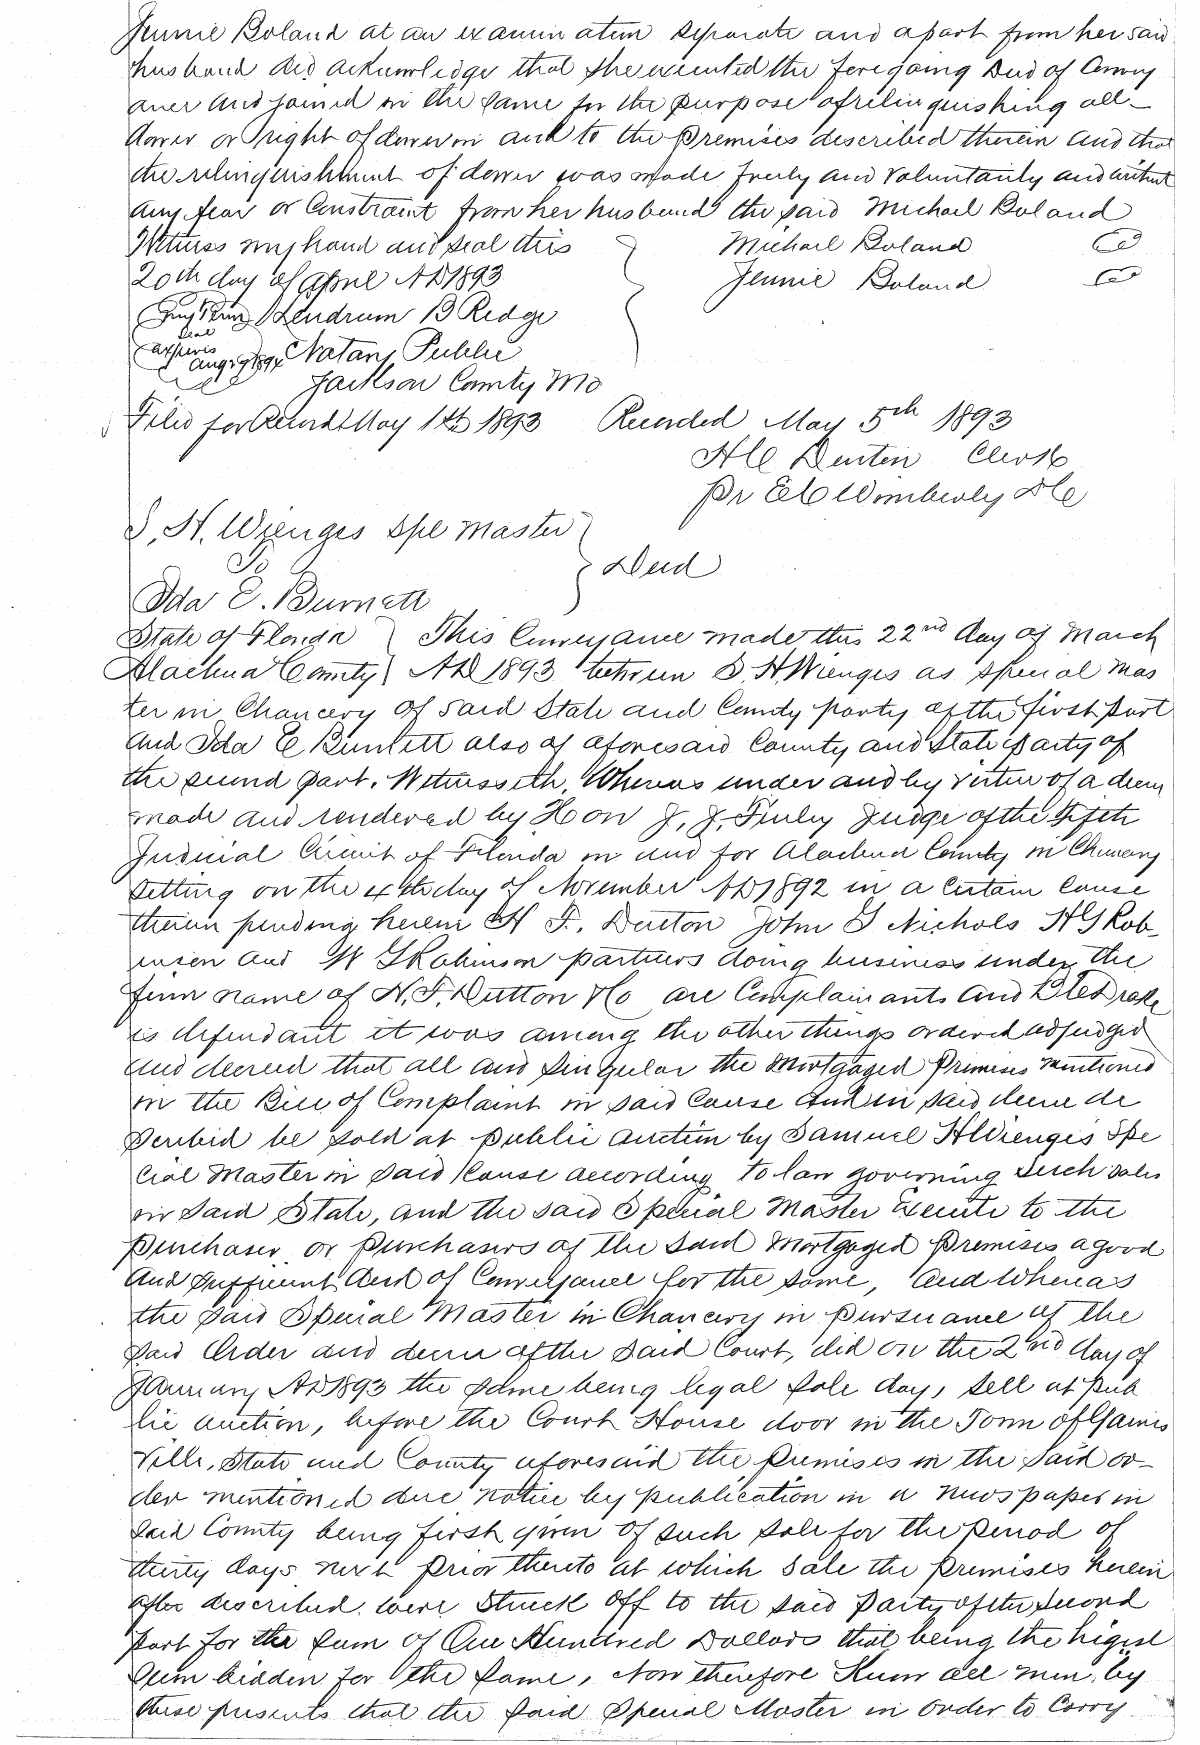 Jennie Boland at an examination separate and apart from her said
husband did acknowledge that she executed the foregoing Deed of Convey
ance and joined in the same for the purpose of relinquishing all
dower or right of dower in and to the premises described therein and that
the relinquishment of dower was made freely and voluntarily and without
any fear or Constraint from her husband the said Michael Boland
Witness my hand and seal this } Michael Boland
20th day of April AD 1893 Jennie Boland
Lendrum B Ridge
seal
expires
Aug 19 1894 Notary Public
Jackson County Mo
Filed for Record May 1st 1893 Recorded May 5th 1893
H C Denton Clerk
Pr E C Wimberly DC
S. H. Wienges Spe Master }
To } Deed
Ida E. Burnett
State of Florida } This Conveyance made this 22nd day of March
Alachua County } AD 1893 between S. H. Wienges as special Mas
ter in Chancery of said State and County party of the first part
and Ida E Burnett also of aforesaid County and State party of
the second part. Witnesseth, Whereas under and by virtue of a decree
made and rendered by Hon J. J. Finley Judge of the Fifth
Judicial Circuit of Florida in and for Alachua County in Chancery
Setting on the 4th day of November AD 1892 in a Certain Cause
therein pending herein H F. Dutton John G Nichols H G Rob-
inson and W G Robinson partners doing business under the
firm name of H. F. Dutton & Co are Complainants and Drake
is defendant it was among the other things ordered adjudged
and decreed that all and Singular the Mortgaged Premises mentioned
in the Bill of Complaint in said Cause and in said decree de
scribed be sold at public auction by Samuel H Wienges Spe
cial Master in said Cause according to law governing such sales
in said State, and the said Special Master Execute to the
purchaser or purchasers of the said Mortgaged premises a good
and sufficient Deed of Conveyance for the same, and Whereas
the said Special Master in Chancery in pursuance of the
said Order and decree of the said Court, did on the 2nd day of
January AD 1893 the same being legal sale day, sell at pub
lic auction, before the Court House door in the Town of Gaines
ville, State and County aforesaid the premises in the said or-
der mentioned due notice by publication in a newspaper in
said County being first given of such sale for the period of
thirty days next prior thereto at which sale the premises herein
after described were Struck off to the said Party of the second
part for the sum of One Hundred Dollars that being the higest
sum bidden for the same, Now therefore Know all men by
these presents that the said Special Master in order to Carry